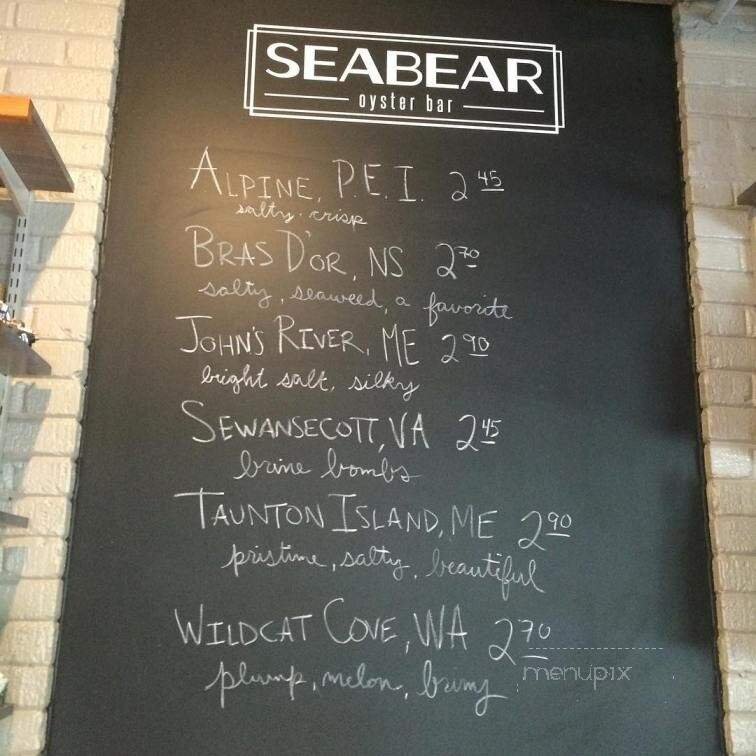 SEABEAR
oyster bar
ALPINE, P.E.I. 2 45
salty. crisp
BRAS D'OR, NS 2 70
salty, seaweed, a favorite
JOHN'S RIVER, ME 2 90
bright salt, silky
SEWANSECOTT, VA 2 45
brine bombs
TAUNTON ISLAND, ME 2 90
pristine, salty, beautiful
WILDCAT COVE, WA 2 70
plump, melon, briny
menupix